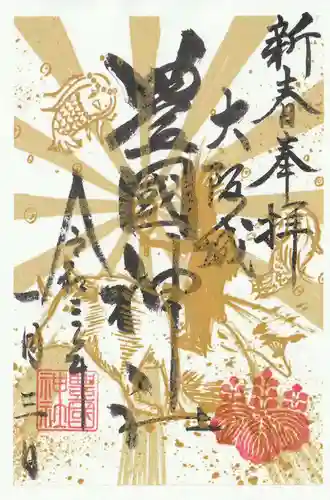 新春奉拝
大阪城
豊國神社
令和三年
一月三日
豊國神社